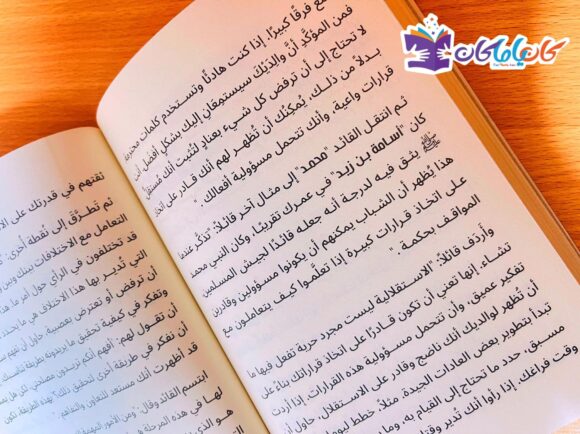 مع فرقًا كبيرًا. إذا كنت هادئًا وتستخدم كلمات محترمة
فمن المؤكَّدِ أنَّ والدَيْكَ سيستمعان إليك بشكل أفضل
لا تحتاج إلى أن ترفض كل شيء بعنادٍ لتُثبت أنك مُستقل
بدلًا من ذلك، يُمكنُك أن تُظهر لهم أنك قادر على اتخاذ
قرارات واعية، وأنك تتحمل مسؤولية أفعالك."
ثم انتقل القائد "محمد" إلى مثال آخر قائلًا: "تذكَّر عندما
كان "أسامة بن زيد" في عمرك تقريبًا، وكان النبي محمد
ﷺ يثق فيه لدرجة أنه جعله قائدًا لجيش المسلمين
هذا يُظهر أن الشباب يمكنهم أن يكونوا مسؤولين وقادرين
على اتخاذ قرارات كبيرة إذا تعلَّموا كيف يتعاملون مع
المواقف بحكمة."
وأردف قائلًا: "الاستقلالية ليست مجرد حرية تفعل فيها ما
تشاء، إنها تعني أن تكون قادرًا على اتخاذ قراراتك بناءً على
تفكير عميق، وأن تتحمل مسؤولية هذه القرارات. إذا أردت
أن تُظهر لوالديك أنك ناضج وقادر على الاستقلال، حاول أن
تبدأ بتطوير بعض العادات الجيدة. مثلًا، خطط ليومك
مسبق، حدد ما تحتاج إلى القيام به، وما
وقت فراغك. إذا رأوا أنك تُدير وقتك
ثقتهم في قدرتك على
ثم تَطرَّقَ إلى نقطة أخرى:
التعامل مع الاختلافات بينك وبين
قد تختلفون في الرأي حول أمر ما. هذا
التي تُدير بها هذا الاختلاف هي ما يحدد
أن ترفض أو تعترض بعصبية، حاول أن تفهم
وتفكر في كيفية تحقيق ما يريدونه بطريقة تناسبك.
أن تقول لهم: أفهم أنكم تريدون مصلحتي، لكن هل
أن نفكر في طريقة أخرى لتحقيق ذلك؟ بهذه الطريقة تكون
قد أظهرت أنك مستعد للتعاون والتفاهم."
ابتسم القائد وقال: "ومن الأمور المهمة
لها في هذه المرحلة
هو الذي
كان ياما كان